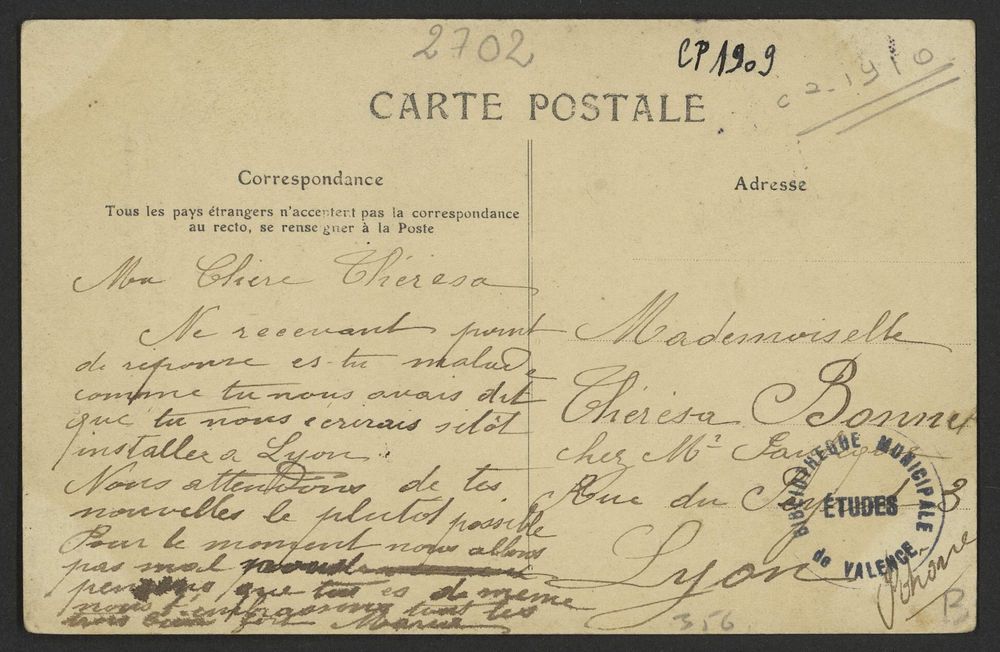 2702
CP1909
CARTE POSTALE
Correspondance
Tous les pays étrangers n'acceptent pas la correspondance
au recto, se renseigner à la Poste
Ma Chere Thérésa
Ne recevant point
de reponse es-tu malade
comme tu nous avais dit
que tu nous ecrirais sitôt
installer a Lyon.
Nous attendons de tes
nouvelles le plutôt possible
Pour le moment nous allons
pas mal
pensons que tu es de même
nous t'embrassons tout les
trois bien fort Marie
Adresse
Mademoiselle
Thérésa Bonnet
chez Mr
Rue du 3
Lyon
Rhône
BIBLIOTHEQUE MUNICIPALE
ÉTUDES
de VALENCE
356
B